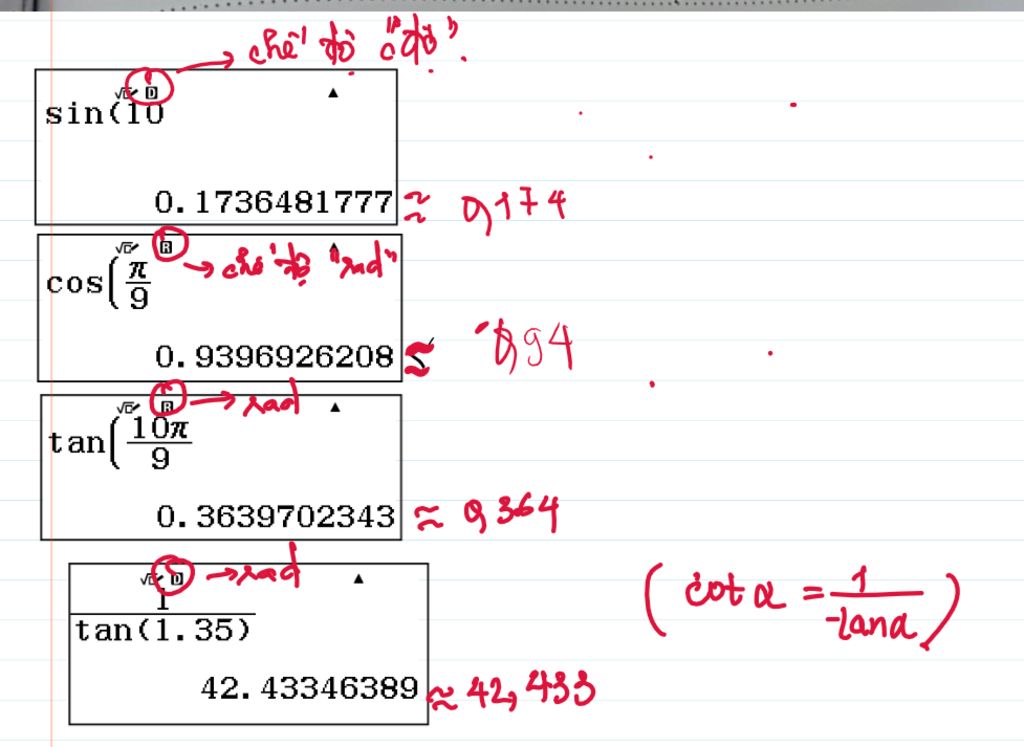 chế độ "độ".
√□/ D ▲
sin(10
0.1736481777 ≈ 0,174
√□/ R ▲
→ chế độ "rad"
cos(π/9
0.9396926208 ≈ 0,94
√□/ R → rad ▲
tan(10π/9
0.3639702343 ≈ 0,364
√□/ D → rad ▲
1/tan(1.35) (cot α = 1/tan α)
42.43346389 ≈ 42,433